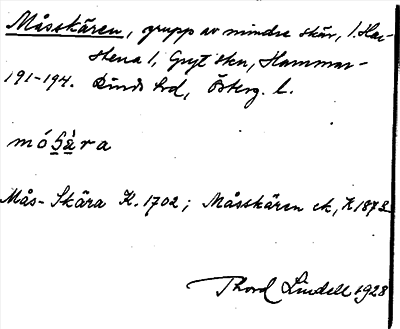 Måsskären, grupp av mindre skär, l. Har-
stena 1, Gryt skn, Hammar-
191-194. kinds hd, Österg. l.
mósära
Mås-Skära K. 1702; Måsskären ek, K 1873
Thord Lindell 1928